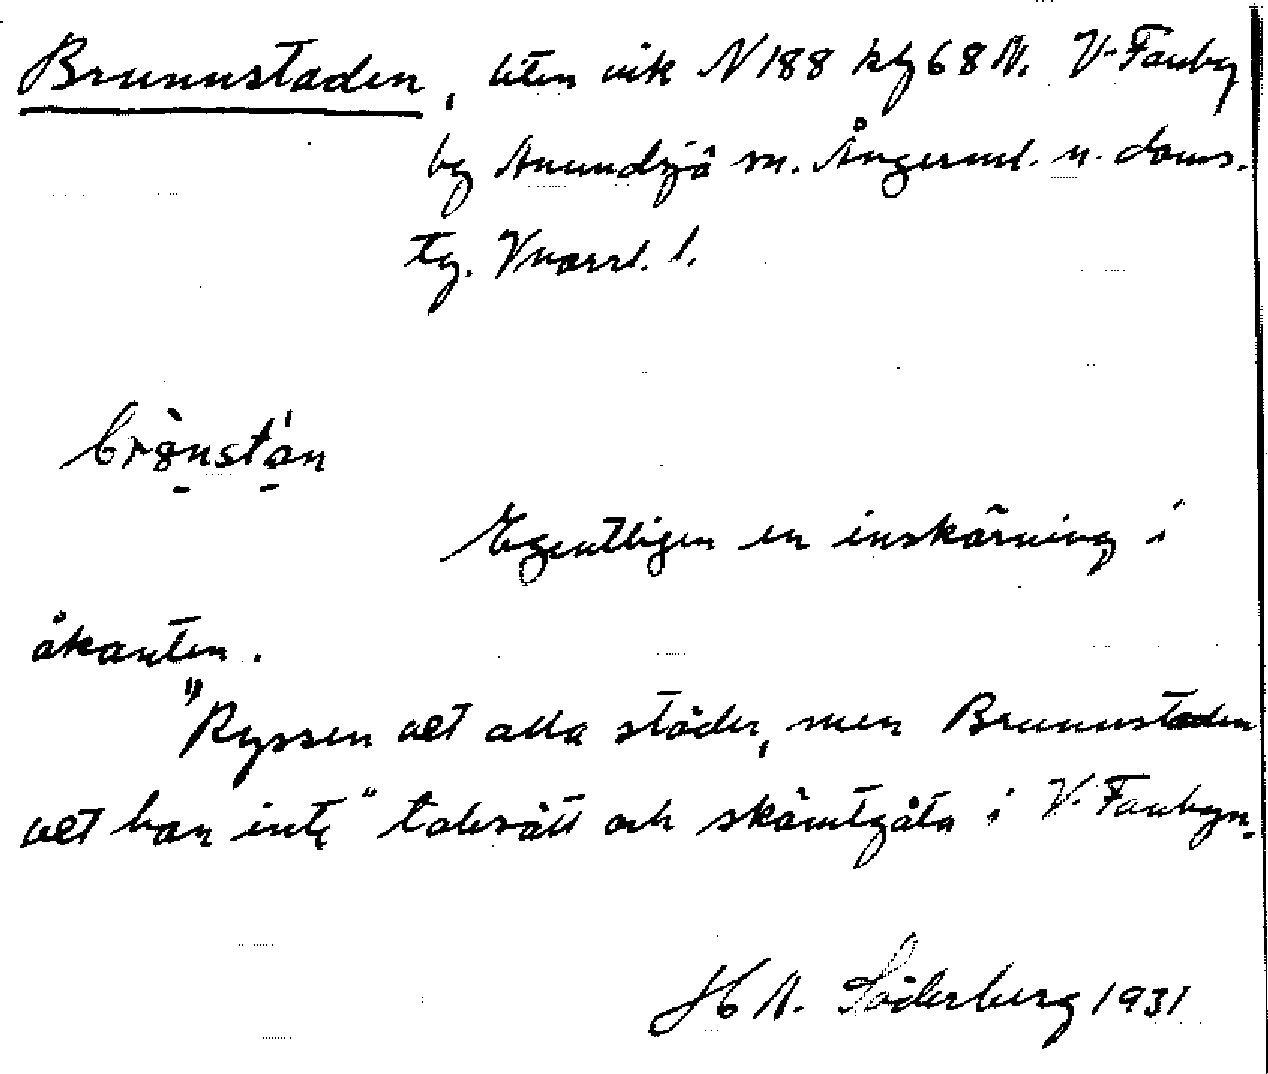 Brunnstaden, liten vik N 188 kg 68 N. V-Fanby
by Anundsjö sn. Ångerml. n. doms.
tg. Vnorrl. l.
Egentligen en inskärning i
åkanten.
"Ryssen vet alla städer, men Brunnstaden
vet han inte" talesätt och skämtgåta i V. Fanbyn.
H A. Söderberg 1931